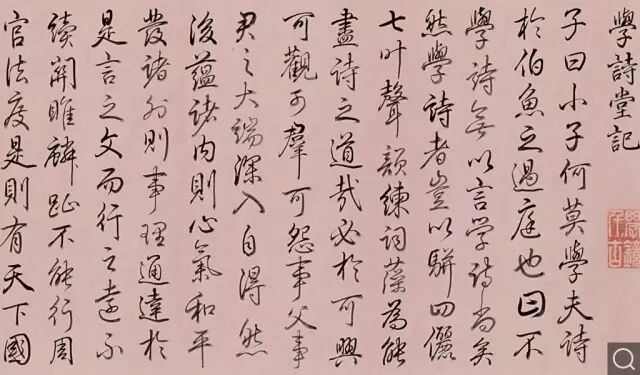 學詩堂記
子曰小子何莫學夫詩
於伯魚之過庭也曰不
學詩無以言學詩尚矣
然學詩者豈以駢四儷
七叶聲韻練詞藻為能
盡詩之道哉必於可興
可觀可羣可怨事父事
君之大端深入自得然
後蘊諸內則心氣和平
發諸外則事理通達於
是言之文而行之遠不
讀關雎麟趾不能行周
官法度是則有天下國